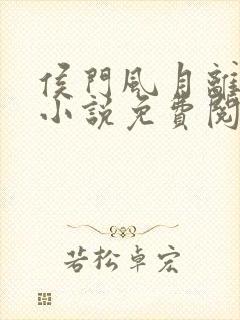 侯門風月離
小說免費閱
若松卓宏